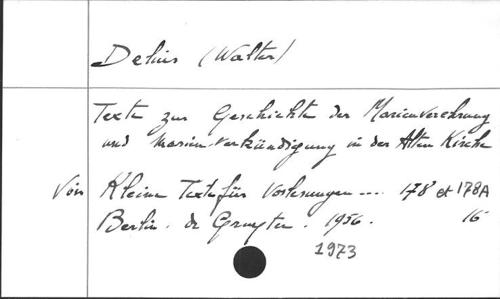 Delius (Walter)
Texte zur Geschichte der Marienverehrung
und Marien-Verkündigung in der Alten Kirche
Voir Kleine Texte für Vorlesungen .... 178 et 178A
Berlin. de Gruyter. 1956. 16
1973